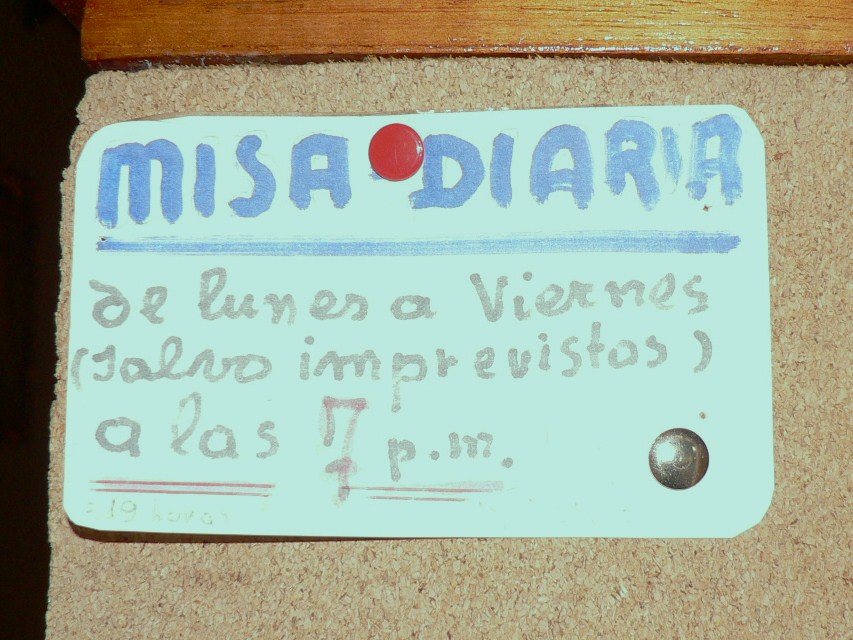 MISA DIARIA
de lunes a Viernes
(salvo imprevistos)
a las 7 p.m.
= 19 horas